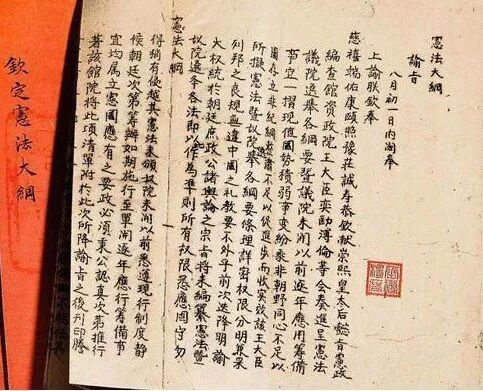 憲法大綱
諭旨
八月初一日內閣奉
上諭朕欽奉
慈禧端佑康頤照豫莊誠壽恭欽獻崇熙皇太后懿旨憲政
編查館資政院王大臣奕劻溥倫等會奏進呈憲法
議院選舉各綱要暨議院未開以前逐年應用籌備
事宜一摺現值國勢積弱事變紛乘非朝野同心不足以
圖存立非紀綱整肅不足以促進步而收實效該王大臣
所擬憲法暨以院選舉各綱要條理詳密權限分明兼采
列邦之良規無違中國之礼教要不外乎前次迭降明諭
大权統於朝廷庶政公諸輿論之宗旨將來編纂憲法暨
以院選举各法即以作為準則所有权限悉應固守勿
憲法大綱
得稍有侵越其憲法未頒以院未開以前悉遵現行制度靜
候朝廷次第筹辦如期施行至單開逐年應行筹備事
宜均属立憲國應有之要政必須秉公認真次第推行
著該館院將此項清單附於此次所降諭旨之後刊印謄
欽定憲法大綱